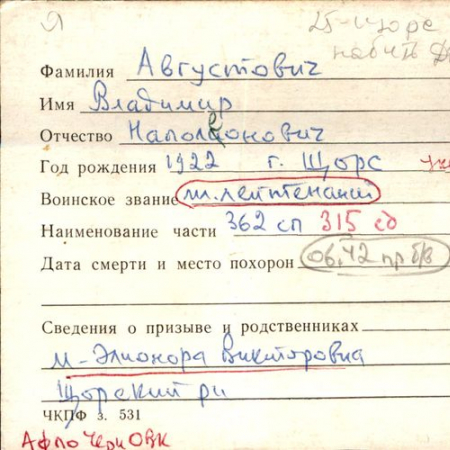 Я
25-Щорс
Фамилия Августович
Имя Владимир
Отчество Наполеонович
Год рождения 1922 г. Щорс
Воинское звание мл. лейтенант
Наименование части 362 сп 315 сд
Дата смерти и место похорон 06.42 пр б/в
Сведения о призыве и родственниках
м-Элионора Викторовна
Щорский р-н
ЧКПФ з. 531